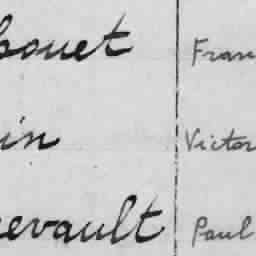 bouet Fran
in Victor
evault Paul